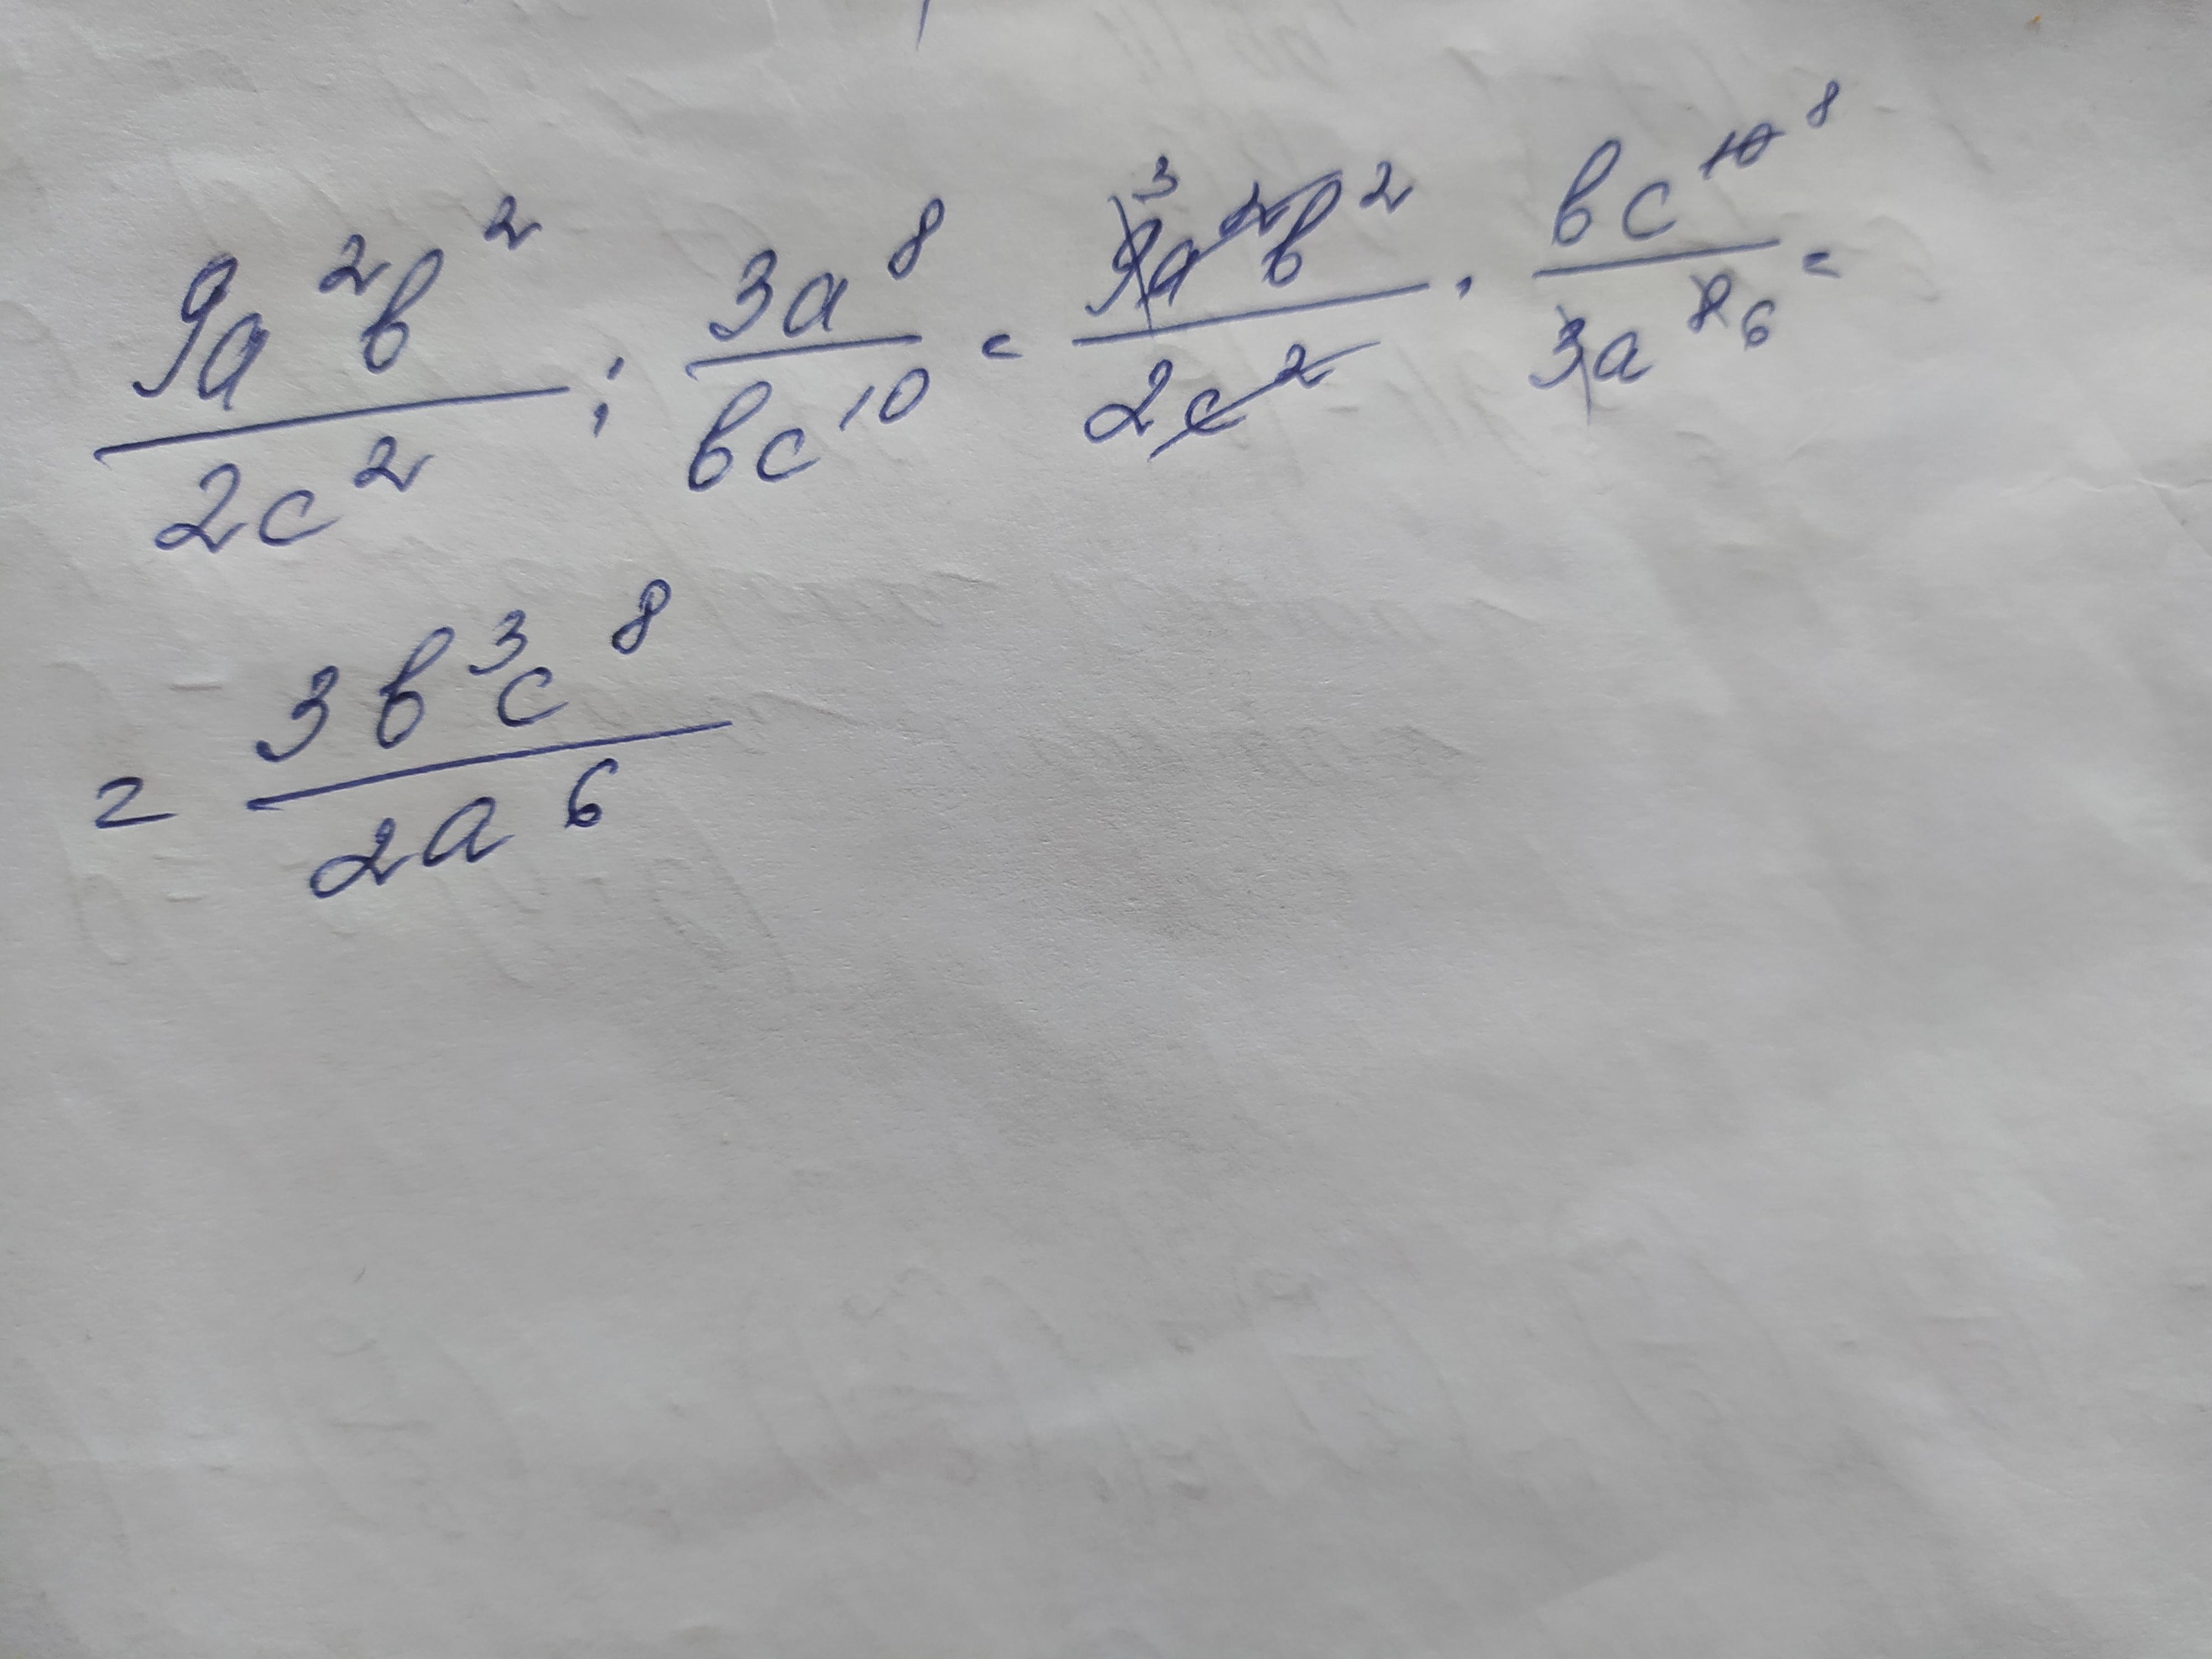 9a²b²/2c² : 3a⁸/bc¹⁰ = 9a²b²/2c² · bc¹⁰/3a⁸ =
= 3b³c⁸/2a⁶